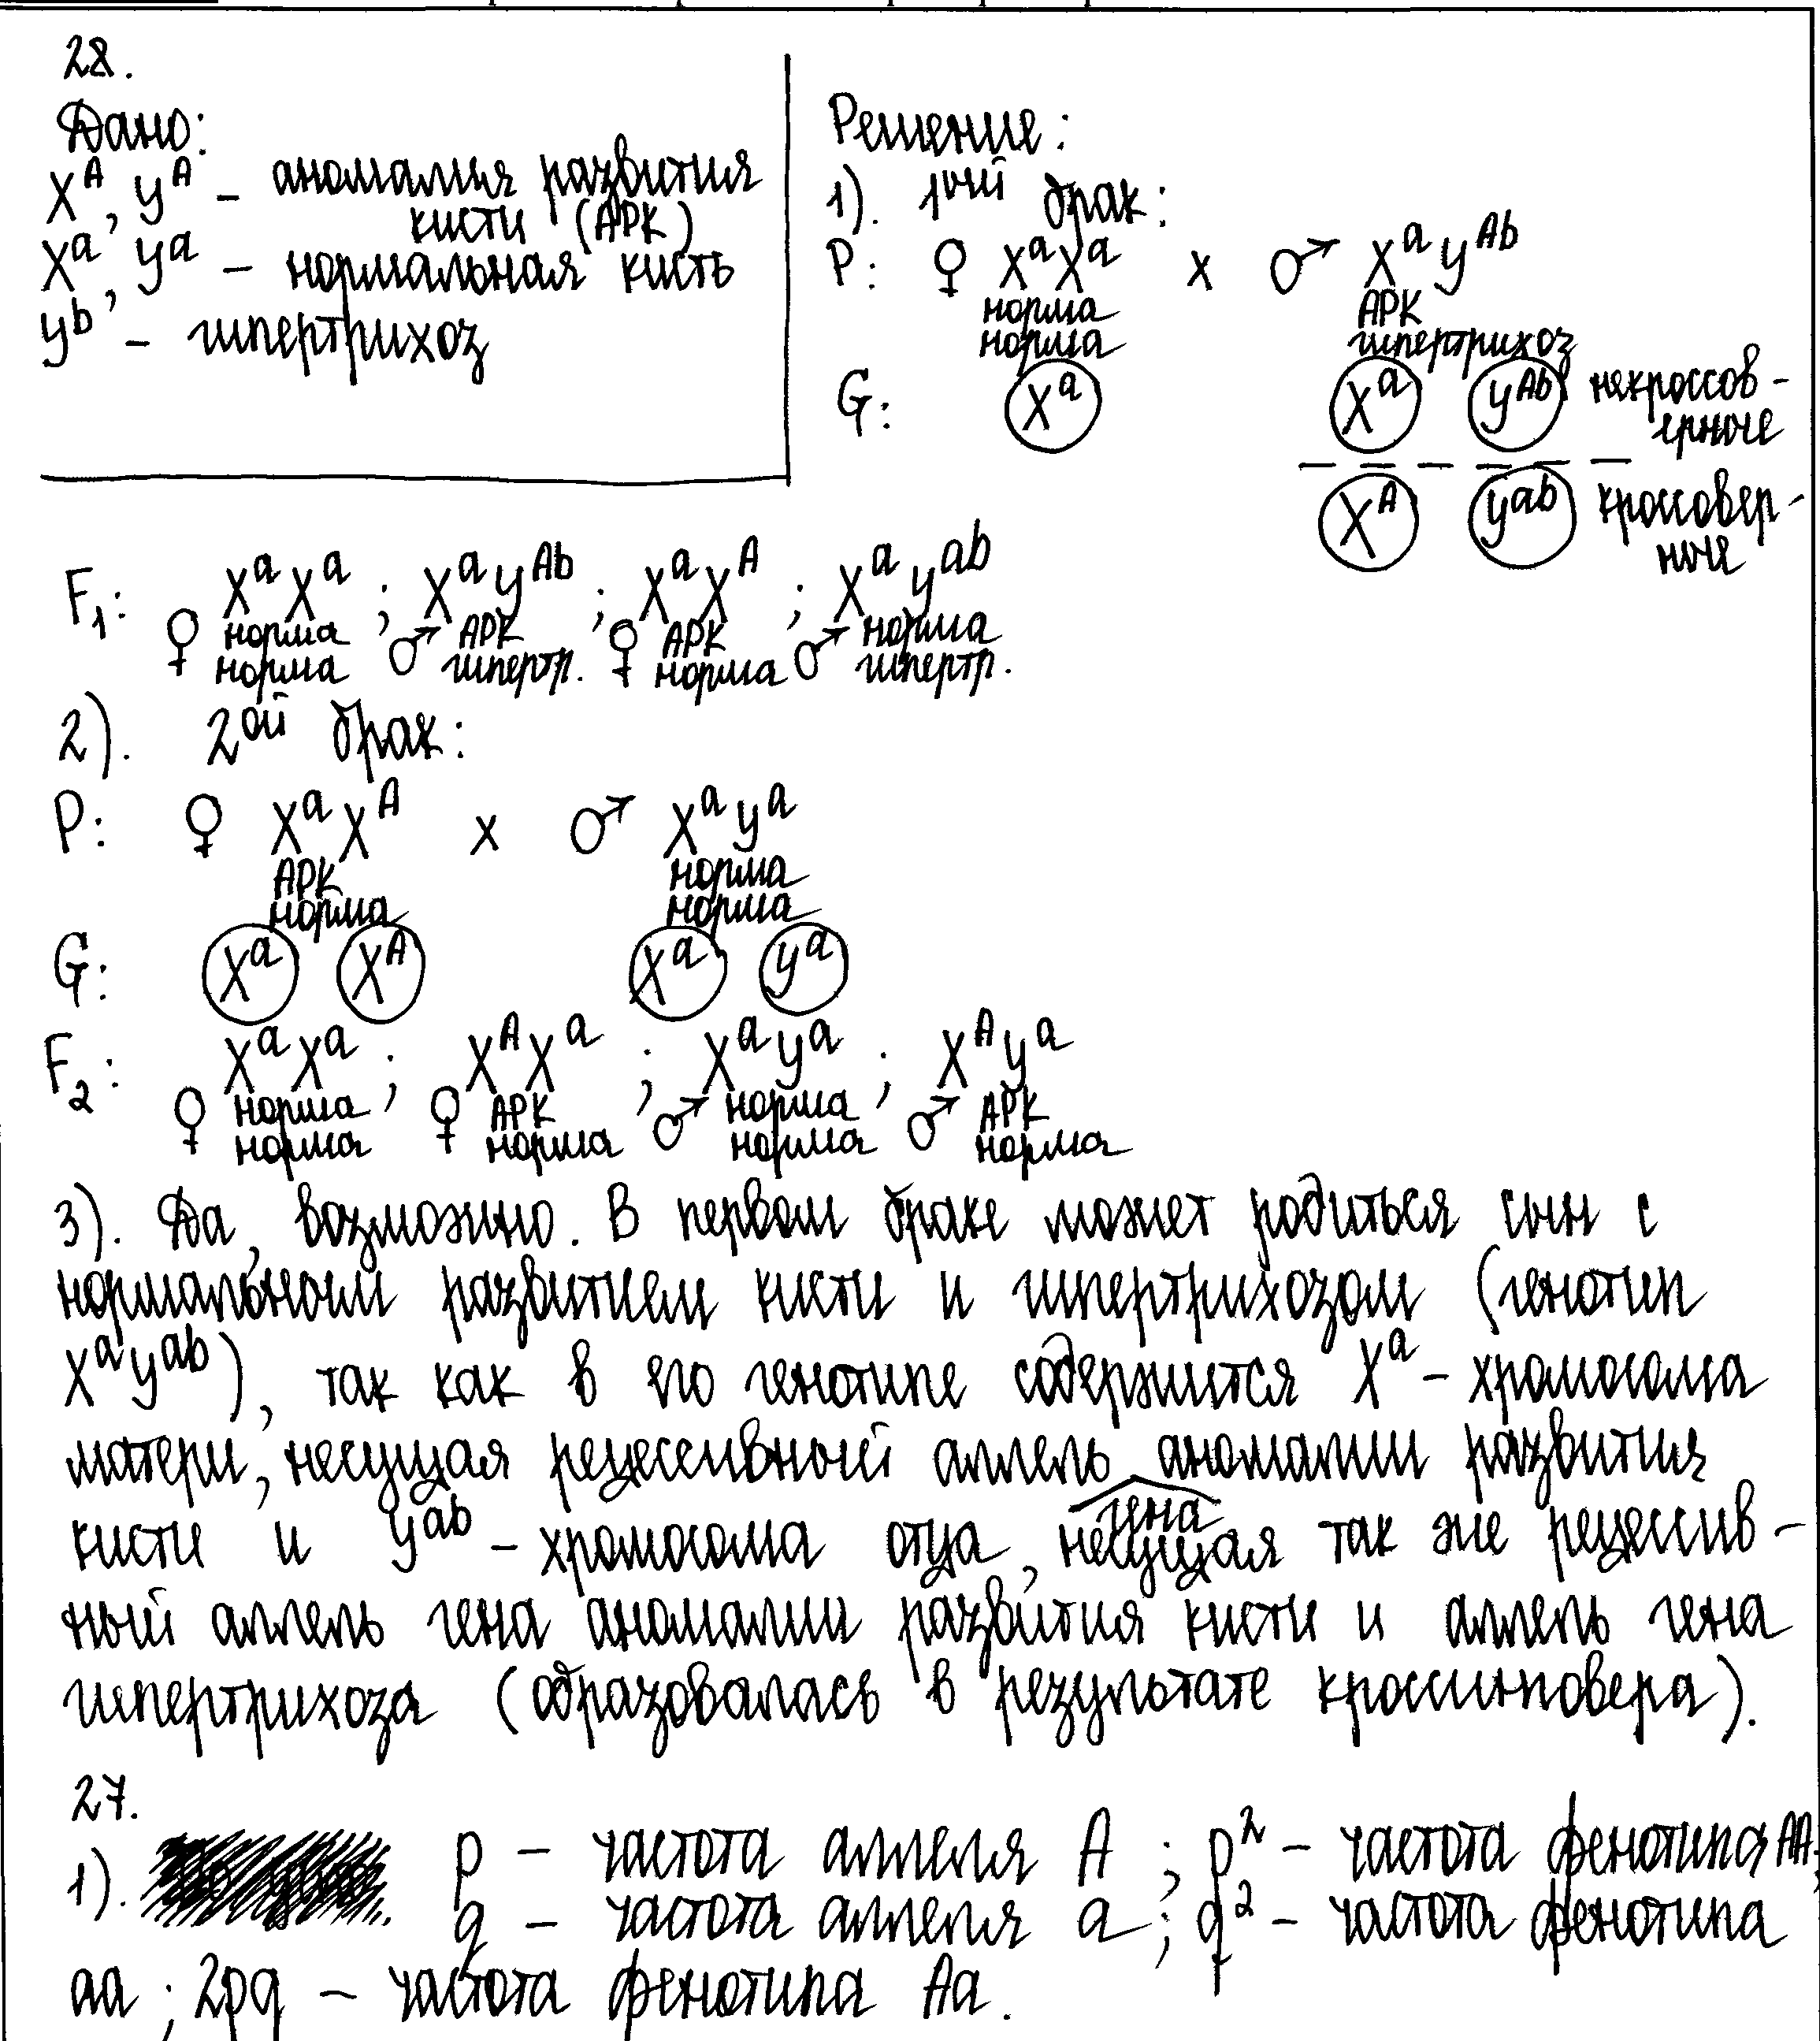 28.
Дано:
X^A, y^A – аномалия развития
кисти (АРК)
X^a, y^a – нормальная кисть
y^b – гипертрихоз
Решение:
1). 1ый брак:
P: ♀ X^aX^a x ♂ X^ay^Ab
норма АРК
норма гипертрихоз
G: X^a X^a y^Ab некроссов-
ерные
X^A y^ab кроссовер-
ные
F1: X^aX^a ; X^ay^Ab ; X^aX^A ; X^ay^ab
♀ норма ♂ АРК ♀ АРК ♂ норма
норма гипертр. норма гипертр.
2). 2ой брак:
P: ♀ X^aX^A x ♂ X^ay^a
АРК норма
норма норма
G: X^a X^A X^a y^a
F2: X^aX^a ; X^AX^a ; X^ay^a ; X^Ay^a
♀ норма ♀ АРК ♂ норма ♂ АРК
норма норма норма норма
3). Да, возможно. В первом браке может родиться сын с
нормальным развитием кисти и гипертрихозом (генотип
X^ay^ab), так как в его генотипе содержится X^a – хромосома
матери, несущая рецессивный аллель гена аномалии развития
кисти и y^ab – хромосома отца, несущая так же рецессив-
ный аллель гена аномалии развития кисти и аллель гена
гипертрихоза (образовалась в результате кроссинговера).
27.
1). p – частота аллеля A ; p² – частота фенотипа AA;
q – частота аллеля a; q² – частота фенотипа
aa ; 2pq – частота фенотипа Aa.